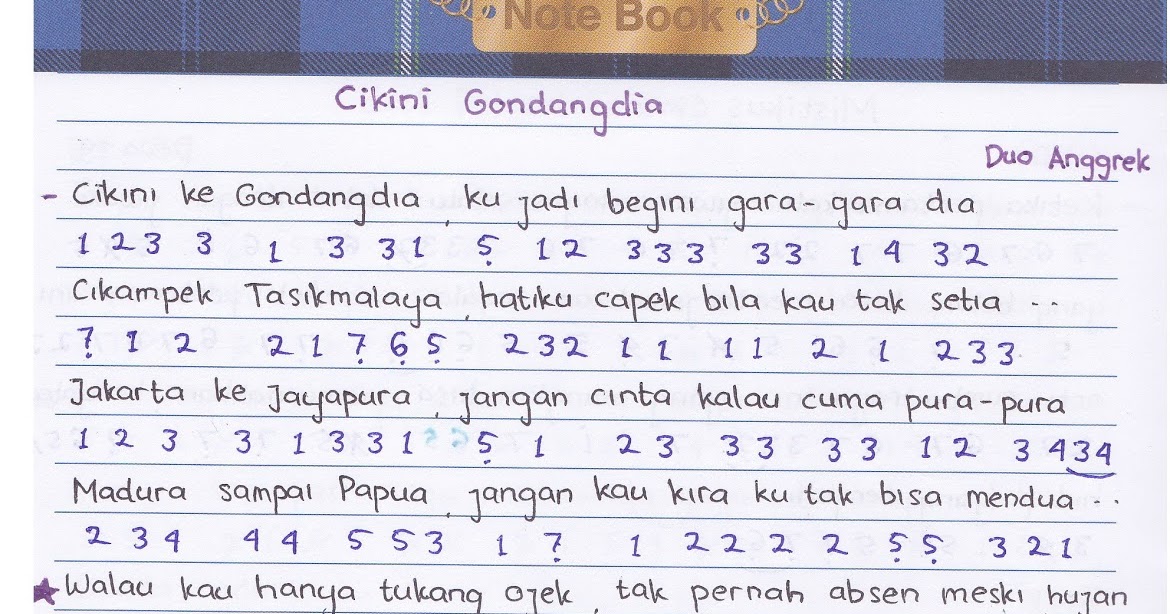 Note Book
Cikini Gondangdia
Duo Anggrek
- Cikini ke Gondangdia, ku jadi begini gara-gara dia
1 2 3 3 1 3 3 1 5̣ 1 2 3 3 3 3 3 1 4 3 2
Cikampek Tasikmalaya, hatiku capek bila kau tak setia ...
7̣ 1 2 2 1 7̣ 6̣ 5̣ 2 3 2 1 1 1 1 2 1 2 3 3
Jakarta ke Jayapura, jangan cinta kalau cuma pura-pura
1 2 3 3 1 3 3 1 5̣ 1 2 3 3 3 3 3 1 2 3 4 3 4
Madura sampai Papua, jangan kau kira ku tak bisa mendua ...
2 3 4 4 4 5 5 3 1 7̣ 1 2 2 2 2 5̣ 5̣ 3 2 1
★ Walau kau hanya tukang ojek, tak pernah absen meski hujan